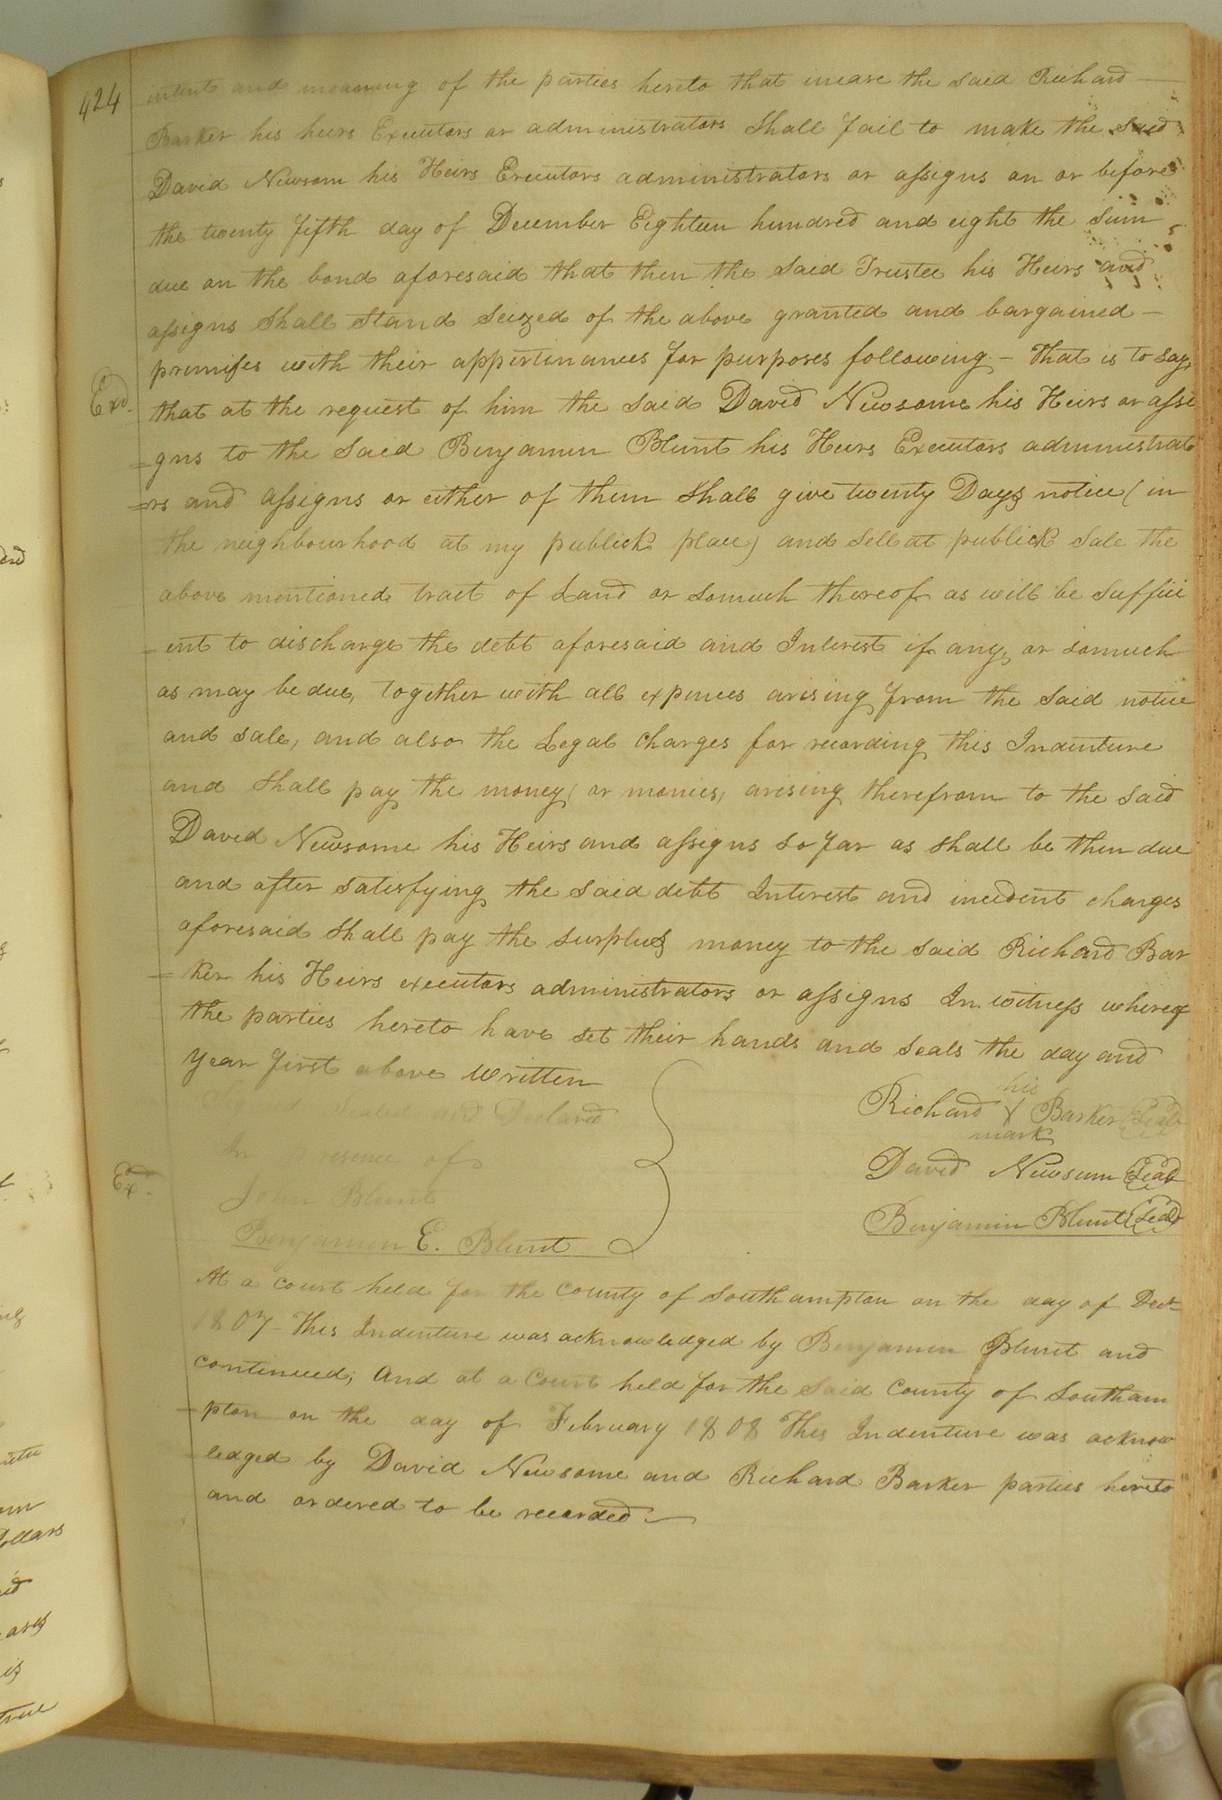 424
intent and meaning of the parties hereto that incase the said Richard
Barker his heirs Executors or administrators Shall fail to make the said
David Newsom his Heirs Executors administrators or assigns on or before
the twenty fifth day of December Eighteen hundred and eight the sum
due on the bond aforesaid that then the Said Trustee his Heirs and
assigns Shall Stand Seized of the above granted and bargained —
premises with their appertinances for purposes following – that is to say,
Exd.
that at the request of him the said David Newsome his Heirs or assi
=gns to the Said Benjamin Blunt his Heirs Executors administrato
=rs and assigns or either of them Shall give twenty Days notice (in
the neighbourhood at my publick place) and Sell at publick Sale the
above mentioned tract of Land or Somuch thereof as will be Suffici
-ent to discharge the debt aforesaid and Interest if any, or somuch
as may be due, together with all expences arising from the Said notice
and sale, and also the Legal charges for recording this Indenture
and Shall pay the money (or monies) arising therefrom to the said
David Newsome his Heirs and assigns So far as shall be then due
and after satisfying the said debt Interest and incident charges
aforesaid Shall pay the surplus money to the said Richard Bar
=ker his Heirs executors administrators or assigns In witness whereof
the parties hereto have set their hands and Seals the day and
year first above written
Signed Sealed and Declared
In presence of
John Blunt
Benjamin E. Blunt
Ex.
his
Richard X Barker Seal
mark
David Newsum Seal
Benjamin Blunt Seal
At a court held for the County of Southampton on the day of Decr
1807 – This Indenture was acknowledged by Benjamin Blunt and
continued; And at a Court held for the Said County of Southam
-pton on the day of February 1808 This Indenture was acknow
ledged by David Newsome and Richard Barker parties hereto
and ordered to be recorded —